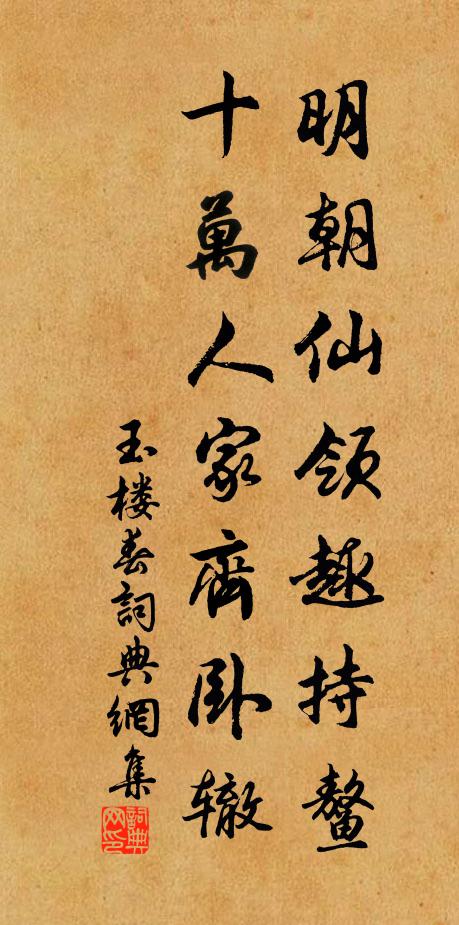 明朝仙领趣持鳌
十萬人家齊卧辙
玉楼春詞典網集
詞典网印